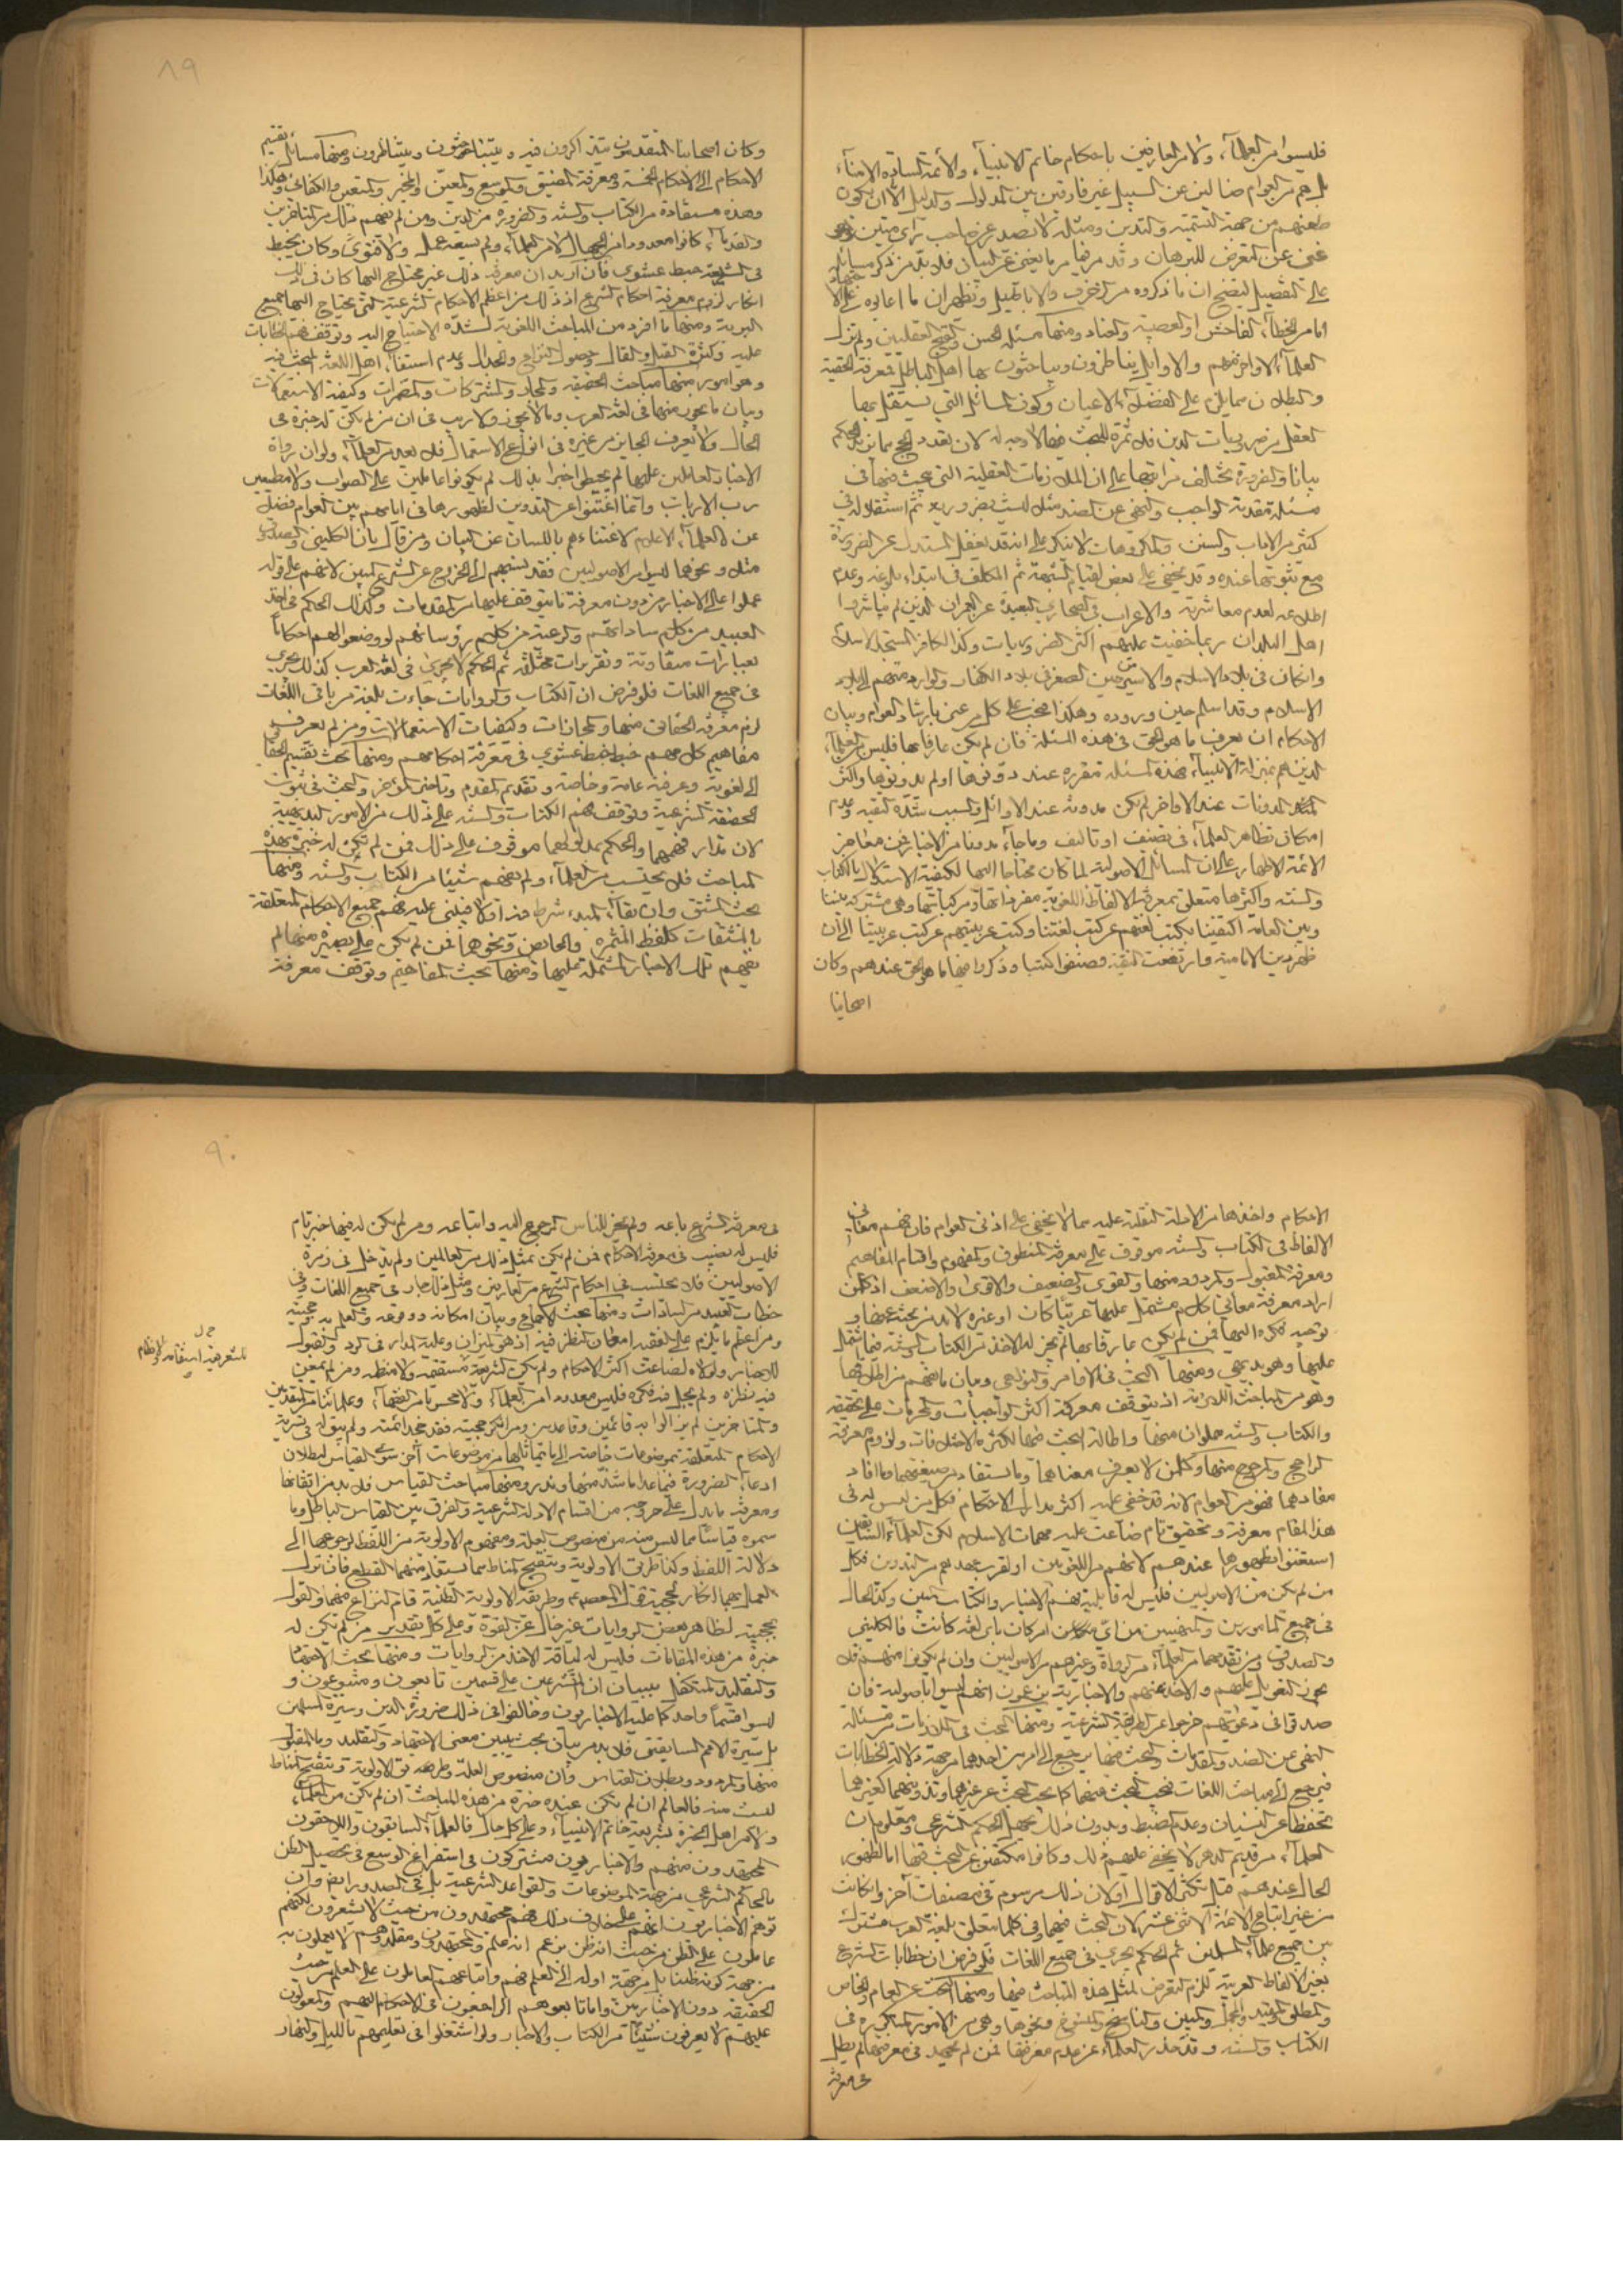 فليسوا من العلماء ولا من العارفين باحكام خاتم الانبياء والائمة السادة الامناء
بل هم من العوام ضالين عن السبيل غير فارقين بين المدلول والدليل الا ان يكون
طعنهم من جهة التسمية والتدين ومثله لا يصدر عن صاحب راى متين
غنى عن التعرض للبرهان وقد مر فيها مر ما يغنى عن البيان فلا بد من ذكر مسائله
على التفصيل ليتضح ان ما ذكروه من الزخرف والاباطيل وتظهر ان ما اعابوه على
اما من الخطاء الفاحش او العصبية والعناد ومنها مسئلة الحسن والقبح العقليين ولم تزل
العلماء الاواخر منهم والاوايل يتناظرون ويباحثون بها اهل الباطل فمعرفة الحقية
والبطلان مما يلزم على الفضلاء الاعيان وكون المسائل التى يستقل بها
العقل من ضروريات الدين فلا ثمرة للبحث فيها لا وجه له لان تعدد الحجج مما يزيد الحكم
بيانا والضرورة تختلف مراتبها على ان الملازمات العقلية التى يبحث فيها فى
مسئلة مقدمة الواجب والنهى عن الضد مثلا ليست بضرورية ثم استقلاله فى
كثير من الاداب والسنن والمكروهات لا ينكر على انه قد يغفل المستدل عن الضرورة
مع ثبوتها عنده وقد يخفى على بعض لقيام الشبهة ثم المكلف فى ابتداء بلوغه وعدم
اطلاعه لعدم معاشرته والاعراب فى الصحارى البعيدة عن العمران الذين لم يباشروا
اهل البلدان ربما خفيت عليهم اكثر الضروريات وكذا الكافر المستجد الاسلام
وانكان فى بلاد الاسلام والاسير من حين الصغر فى بلاد الكفار والوارد منهم الى بلاد
الاسلام وقد اسلم حين وروده وهكذا فيجب على كل من عنى بارشاد العوام وبيان
الاحكام ان يعرف ما هو الحق فى هذه المسئلة فان لم يكن عارفا بها فليس من العلماء
الذين هم بمنزلة الانبياء فهذه المسئلة مقررة عند دونوها او لم يدونوها واكثر
المدونات عند الاواخر لم يكن مدونة عند الاوائل والسبب شدة التقية وعدم
امكان تظاهر العلماء فى تصنيف او تاليف وما جاء مدونا من الاخبار فمن مفاخر
الائمة الاطهار على ان المسائل الاصولية لما كان محتاجا اليها لكيفية الاستدلال بالكتاب
والسنة واكثرها متعلق بمعرفة الالفاظ اللغوية مفرداتها ومركباتها وهى مشتركة بيننا
وبين العامة اكتفينا بكتب لغتهم عن كتب لغتنا وكتب عربيتهم عن كتب عربيتنا الى ان
ظهر دين الامامية وارتفعت التقية فصنفوا كتبا وذكروا فيها ما هو الحق عندهم وكان
اصحابنا
٨٩
وكان اصحابنا المتقدمون يتذاكرون فيه ويتباحثون ويتناظرون ومنها مسائل تقسيم
الاحكام الى الاحكام الخمسة ومعرفة المضيق والموسع والمعين والمخير والمتعين والكفائى وهكذا
وهذه مستفادة من الكتاب والسنة والضرورة من الدين ومن لم يفهم ذلك من المتاخرين
والقدماء كانوا معدودا من الجهال لا من العلماء ولم يسعه عمل ولا فتوى وكان يخبط
فى الشريعة خبط عشوى فان اريد ان معرفة ذلك غير محتاج اليها كان فى ذلك
انكار لزوم معرفة احكام الشرع اذ ذلك من اعظم الاحكام الشرعية التى يحتاج اليها جميع
البرية ومنها ما افرد من المباحث اللغوية لشدة الاحتياج اليه وتوقف فهم الخطابات
عليه وكثرة القيل والقال وحصول النزاع والجدال وعدم استيفاء اهل اللغة البحث فيه
وهو امور منها مباحث الحقيقة والمجاز والمشتركات والمضمرات وكيفية الاستعمالات
وبيان ما يجوز منها فى لغة العرب وما لا يجوز ولا ريب فى ان من لم يكن له خبرة فى
الحال ولا يعرف الجايز من غيره فى انواع الاستعمال فلا يعد من العلماء ولو ان رواة
الاخبار العاملين عليها لم يحيطوا خبرا بذلك لم يكونوا عاملين على الصواب ولا مطيعين
رب الارباب وانما اغتنوا عن التدوين لظهورها فى ايامهم بين العوام فضلا
عن العلماء الاعلام لاغتناءهم باللسان عن البيان ومن قال بان الكلينى والصدوق
مثلا ونحوهما ليسوا من الاصوليين فقد نسبهم الى الخروج عن الشرع المبين لانهم على قوله
عملوا على الاخبار من دون معرفة ما يتوقف عليها من المقدمات وكذلك الحكم فى اخذ
العبيد من كلام ساداتهم والرعية من كلام رؤسائهم لو وضعوا لهم احكاما
بعبارات متفاوتة وتقريرات مختلفة ثم الحكم كما يجرى فى لغة العرب كذلك يجرى
فى جميع اللغات فلو فرض ان الكتاب والروايات جاءت بلغة من باقى اللغات
لزم معرفة الحقائق منها والمجازات وكيفيات الاستعمالات ومن لم يعرف
مفاهيم كلامهم خبط خبط عشوى فى معرفة احكامهم ومنها بحث تقسيم الحقائق
الى لغوية وعرفية عامة وخاصة وتقديم المقدم وتاخير المؤخر والبحث فى ثبوت
الحقيقة الشرعية وتوقف فهم الكتاب والسنة على ذلك من الامور البديهية
لان مدار فهمهما والحكم بمدلولهما موقوف على ذلك فمن لم تكن له خبرة بهذه
المباحث فلا يحتسب من العلماء ولم يفهم شيئا من الكتاب والسنة ومنها
بحث المشتق وان بقاء المبدء شرط فيه اولا فيبنى عليه فهم جميع الاحكام المتعلقة
بالمشتقات كلفظ المثمرة والحائض ونحوهما فمن لم يكن على بصيرة منها لم
يفهم تلك الاخبار المشتملة عليها ومنها بحث المفاهيم وتوقف معرفة
الاحكام واخذها من الادلة النقلية عليه مما لا يخفى على ادنى العوام فان فهم معانى
الالفاظ فى الكتاب والسنة موقوف على معرفة المنطوق والمفهوم واقسام المفاهيم
ومعرفة المقبول والمردود منها والقوى والضعيف والاقوى والاضعف اذ كل من
اراد معرفة معانى كلام مشتمل عليها عربيا كان او غيره لا بد من بحثه عنها و
توجيه فكره اليها فمن لم يكن عارفا بها لم يجز له الاخذ من الكتاب والسنة فيما اشتمل
عليها وهو بديهى ومنها البحث فى الاوامر والنواهى وبيان ما يفهم من اطلاقها
وهو من المباحث اللازمة اذ يتوقف معرفة اكثر الواجبات والمحرمات على تحقيقه
والكتاب والسنة مملوان منها واطالة البحث فيها لكثرة الاختلافات ولزوم معرفة
الراجح والمرجوح منها وكل من لا يعرف معناهما وما يستفاد من صيغتهما وما افاد
مفادهما فهو من العوام لانه قد خفى عليه اكثر مدارك الاحكام فكل من ليس له فى
هذا المقام معرفة وتحقيق تام ضاعت عليه مهمات الاسلام لكن العلماء السابقين
استغنوا بظهورها عندهم لانهم من اللغويين او لقرب عهدهم من التدوين فكل
من لم يكن من الاصوليين فليس له قابلية فهم الاخبار والكتاب المبين وكذا الحال
فى جميع المامورين والمنهيين من اى امر كان باى لغة كانت فالكلينى
والصدوق ومن تقدمهما من العلماء من الرواة وغيرهم من الاصوليين وان لم يكونوا منهم فلا
يجوز التعويل عليهم والاخذ عنهم والاخبارية يدعون انهم ليسوا باصولية فان
صدقوا فى دعوتهم خرجوا عن الطريقة الشرعية ومنها البحث فى الملازمات من مسئلة
النهى عن الضد والمقدمات والبحث فيها يرجع الى امرين احدهما من جهة دلالة الخطابات
فيرجع الى مباحث اللغات فيجب البحث فيهما كما يجب البحث عن غيرهما وتدوينهما كغيرهما
تحفظا عن النسيان وعدم الضبط وبدون ذلك يجهل الحكم الشرعى ومعلوم ان
العلماء من قديم الدهر لا يخفى عليهم ذلك وكانوا مكتفين عن البحث فيها اما لظهور
الحال عندهم قبل تكثر الاقوال او لان ذلك مرسوم فى مصنفات اخر وانكانت
من غير اتباع الائمة الاثنى عشر لان البحث فيها وفى كلما يتعلق بلغة العرب مشترك
بين جميع علماء المسلمين ثم الحكم يجرى فى جميع اللغات فلو فرض ان خطابات الشرع
بغير الالفاظ العربية للزم التعرض لمثل هذه المباحث فيها ومنها البحث عن العام والخاص
والمطلق والمقيد والمجمل والمبين والناسخ والمنسوخ ونحوها وهى من الامور المتكررة فى
الكتاب والسنة وقد حذر العلماء عن عدم معرفتها فمن لم يجهد فى معرفتها لم يطل
فى معرفة
٩٠
فى معرفة الشرع باعه ولم يجز للناس الرجوع اليه واتباعه ومن لم يكن له فيها خبر تام
فليس له نصيب فى معرفة الاحكام فمن لم يكن بمثل ذلك من العالمين ولم يدخل فى زمرة
الاصوليين فلا يحتسب فى احكام الشرع من العارفين ومثل ذلك جار فى جميع اللغات وفى
خطاب العبيد من السادات ومنها بحث الاجماع وبيان امكانه ووقوعه والعلم به وحجيته
ومن اعظم ما يلزم على الفقيه امعان النظر فيه اذ هو الميزان وعليه المدار فى الرد والقبول
للاخبار ولولاه لضاعت اكثر الاحكام ولم يكن الشريعة مستقيمة ولا منتظمة ومن لم يمعن
فيه نظره ولم يجل فيه فكره فليس معدودا من العلماء ولا محسوبا من الفقهاء وعلمائنا من المتقدمين
والمتاخرين لم يزالوا به قائمين وقاعدين ومن انكر حجيته فقد جحد ائمته ولم يبق له فى تسرية
الاحكام المتعلقة بموضوعات خاصة الى ما يماثلها من موضوعات اخر سوى القياس لبطلان
ادعاء الضرورة فيما عدا ما شذ منها وندر ومنها مباحث القياس فلا بد من اتقانها
ومعرفة ما يدل على خروجه من اقسام الادلة الشرعية والفرق بين القياس الباطل وما
سموه قياسا مما ليس منه من منصوص العلة ومفهوم الاولوية من اللفظ لرجوعهما الى
دلالة اللفظ وكذا طريق الاولوية وتنقيح المناط مما يستفاد منهما القطع فان ترك
العمل بهما انكار لحجية قول المعصوم وطريقة الاولوية الظنية قام النزاع فيها والقول
بحجيته لظاهر بعض الروايات غير خال عن القوة وعلى كل تقدير من لم تكن له
خبرة من هذه المقامات فليس له لياقة الاخذ من الروايات ومنها بحث الاجتهاد
والتقليد المتكفل ببيان ان المتشرعين على قسمين تابعون ومتبوعون و
ليسوا قسما واحدا كما عليه الاخباريون وخالفوا فى ذلك ضرورة الدين وسيرة المسلمين
بل سيرة الامم السابقين فلا بد من بيان بحث تبيين معنى الاجتهاد والتقليد وبيان المقبول
منها والمردود وبطلان القياس وان منصوص العلة وطريقة الاولوية وتنقيح المناط
ليست منه فالعالم ان لم تكن عنده خبرة من هذه المباحث ان لم يكن من العلماء
ولا من اهل الخبرة بشريعة خاتم الانبياء وعلى كل حال فالعلماء السابقون واللاحقون
المجتهدون منهم والاخباريون مشتركون فى استفراغ الوسع فى تحصيل الظن
بالحكم الشرعى من جهة الموضوعات والقواعد الشرعية بل فى الصدور ايضا وان
توهم الاخباريون انهم على خلاف ذلك فهم مجتهدون من حيث لا يشعرون لكنهم
عاملون على الظن من حيث انه ظن بزعم انه علم والمجتهدون ومقلدوهم لا يعملون به
من جهة كونه ظنا بل من جهة اوله الى العلم فهم واتباعهم العاملون على العلم من حيث
الحقيقة دون الاخباريين واما تابعوهم الراجعون فى الاحكام اليهم والمعولون
عليهم لا يعرفون شيئا من الكتاب والاخبار ولو اشتغلوا فى تعليمهم بالليل والنهار